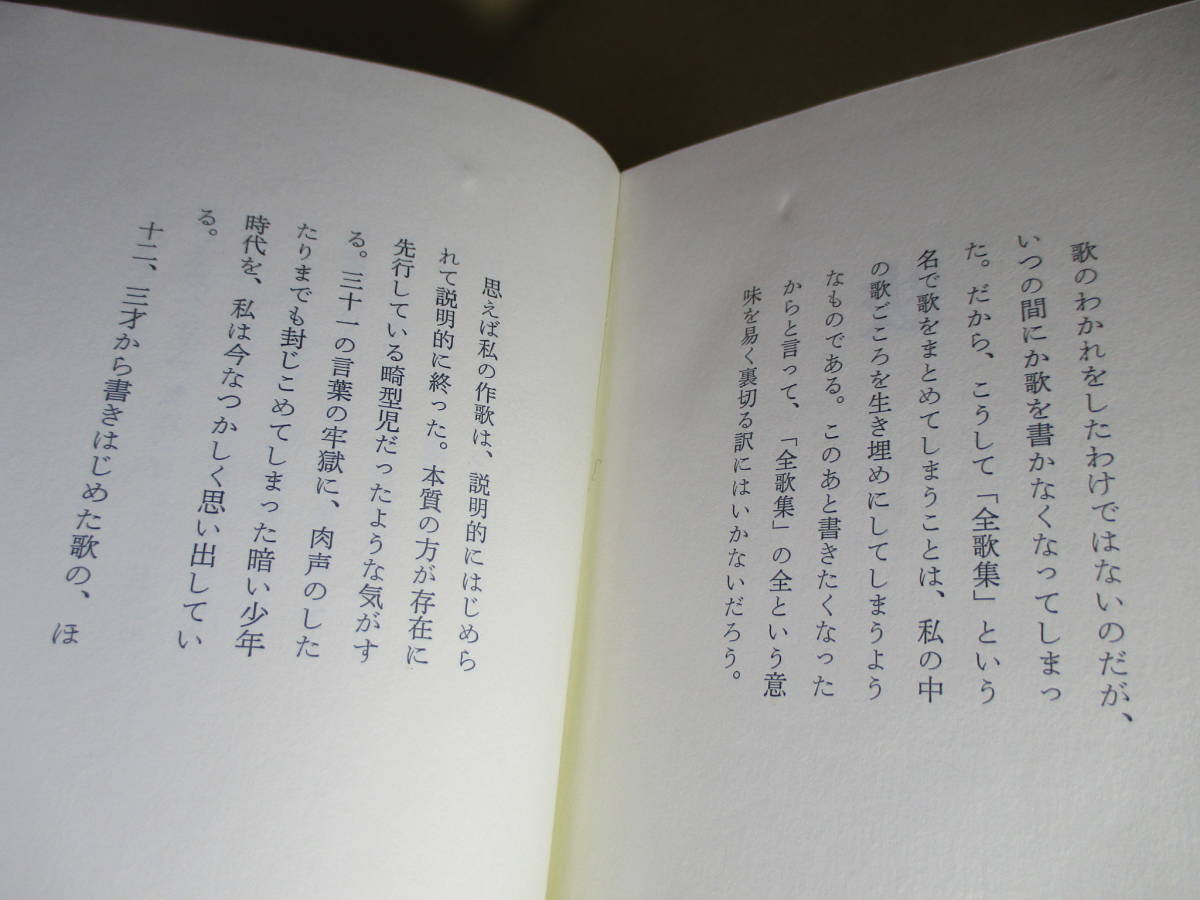 歌のわかれをしたわけではないのだが、
いつの間にか歌を書かなくなってしまっ
た。だから、こうして「全歌集」という
名で歌をまとめてしまうことは、私の中
の歌ごころを生き埋めにしてしまうよう
なものである。このあと書きたくなった
からと言って、「全歌集」の全という意
味を易く裏切る訳にはいかないだろう。
思えば私の作歌は、説明的にはじめら
れて説明的に終った。本質の方が存在に
先行している畸型児だったような気がす
る。三十一の言葉の牢獄に、肉声のした
たりまでも封じこめてしまった暗い少年
時代を、私は今なつかしく思い出してい
る。
十二、三才から書きはじめた歌の、ほ